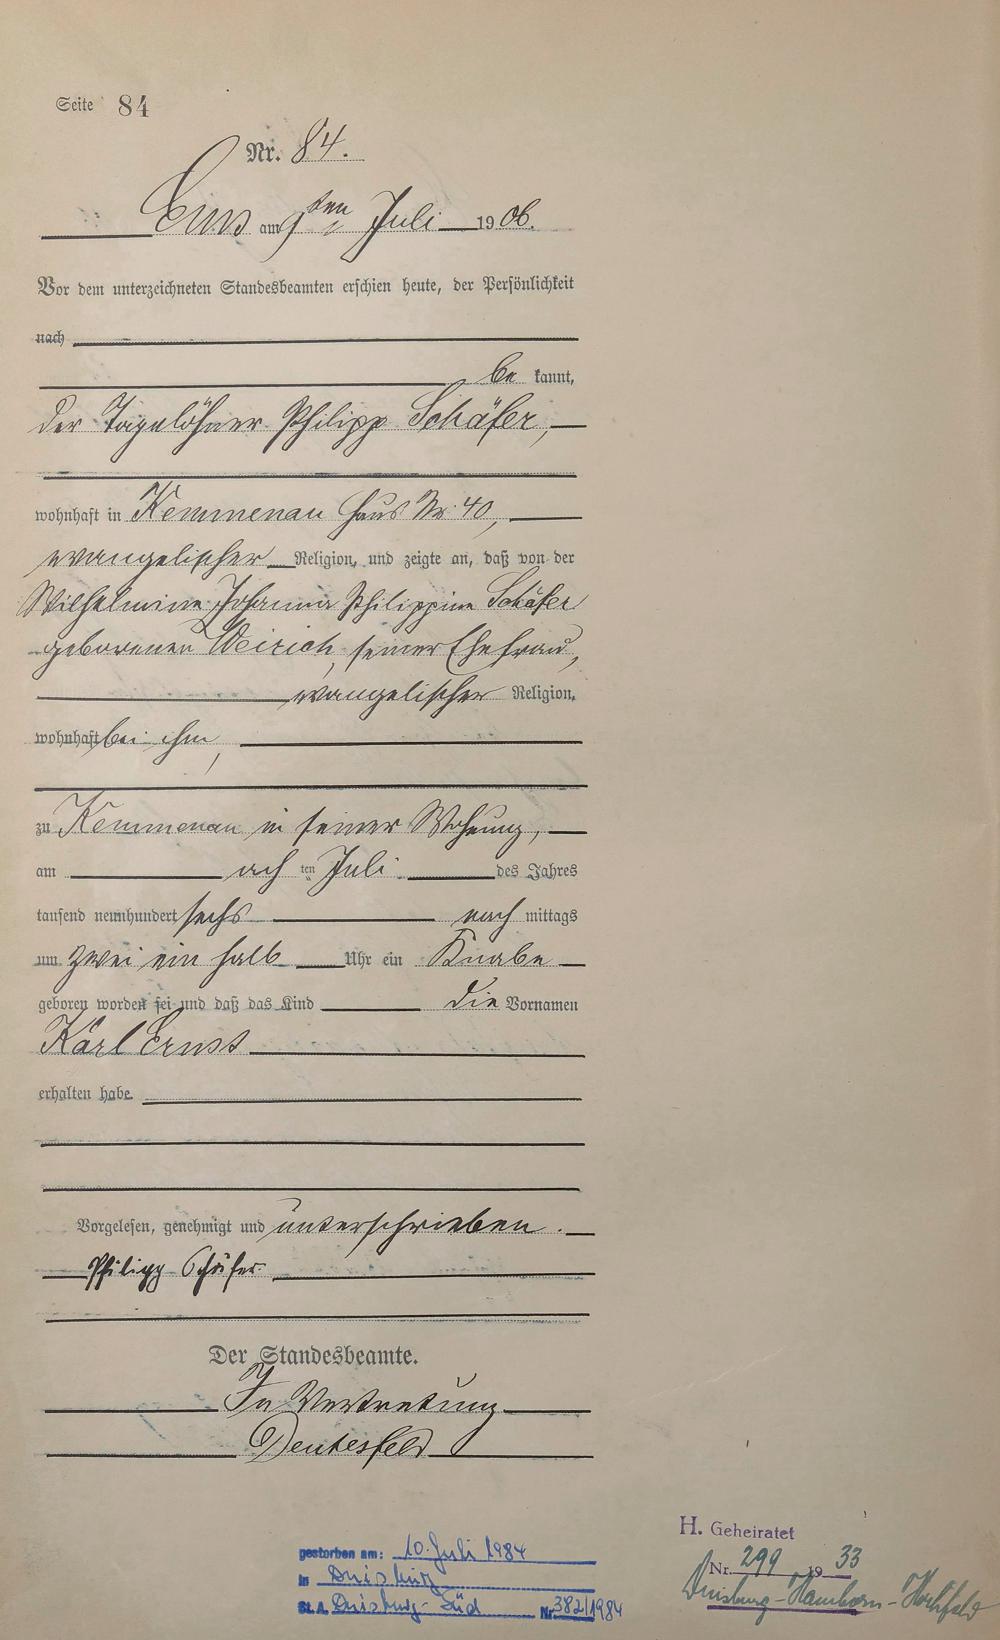 Seite 84
Nr. 84.
Ems am 9ten Juli 1906.
Vor dem unterzeichneten Standesbeamten erschien heute, der Persönlichkeit
nach
be kannt,
der Tagelöhner Philipp Schäfer,
wohnhaft in Kemmenau Haus Nr. 40,
evangelischer Religion, und zeigte an, daß von der
Wilhelmine Johanna Philippine Schäfer
geborenen Weirich, seiner Ehefrau,
evangelischer Religion,
wohnhaft bei ihm,
zu Kemmenau in seiner Wohnung,
am ach ten Juli des Jahres
tausend neunhundert sechs nach mittags
um zwei ein halb Uhr ein Knabe
geboren worden sei und daß das Kind die Vornamen
Karl Ernst
erhalten habe.
Vorgelesen, genehmigt und unterschrieben.
Philipp Schäfer.
Der Standesbeamte.
In Vertretung
gestorben am: 10. Juli 1984
in Duisburg
St.A. Duisburg-Süd Nr. 382/1984
H. Geheiratet
Nr. 299 1933
Duisburg-Hamborn-Hochfeld